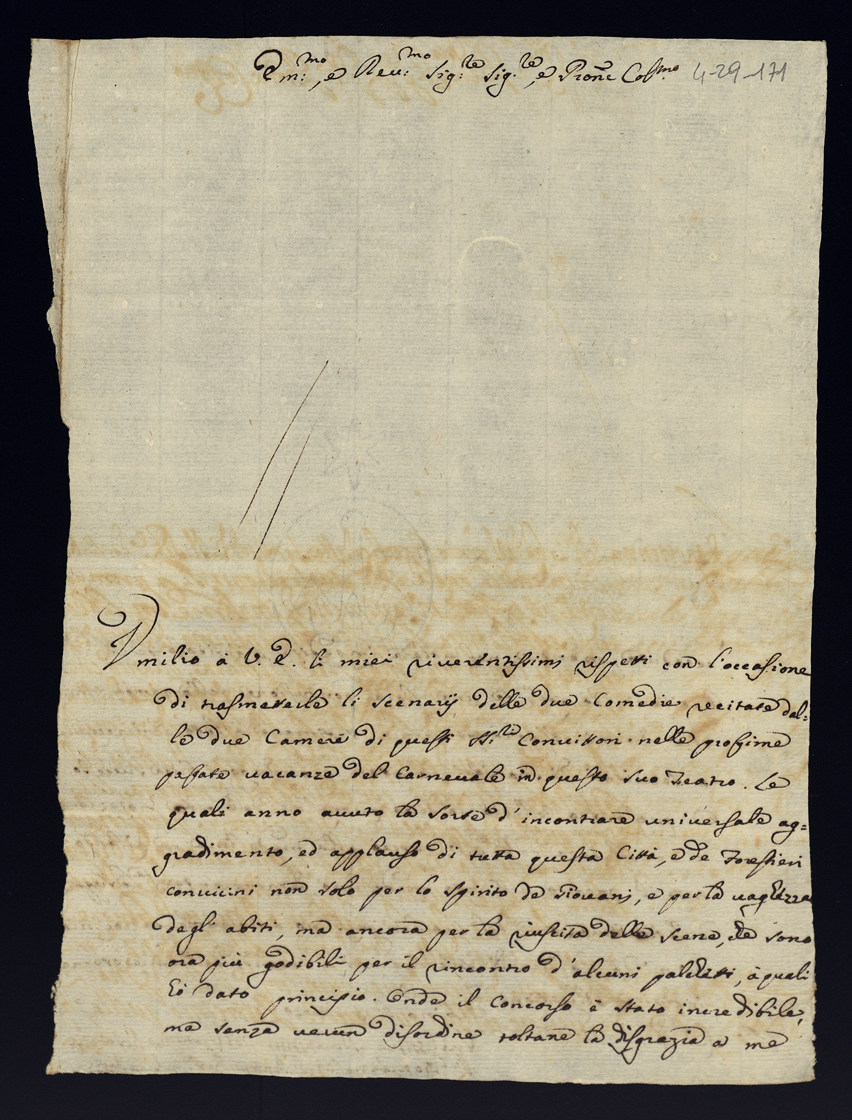 Em:mo, e Reu:mo Sig:re Sig:re, e Prone Colmo 4-29-171
Vmilio à V. E. li miei riuerentissimi rispetti con l'occasione
di trasmeterle li scenarij delle due Comedie recitate dal=
le due Camere di questi SS:ri Conuittori nelle prossime
passate uacanze del Carneuale in questo suo Teatro. Le
quali anno auuto la sorte d'incontrare uniuersale ag=
gradimento, ed applauso di tutta questa Città, e de Forestieri
conuicini non solo per lo spirito de Giouani, e per la uaghezza
degl' abiti, ma ancora per la riuscita delle scene, che sono
ora più godibili per il rincontro d'alcuni palchetti, à quali
hò dato principio. Onde il concorso è stato incredibile,
ma senza uerun disordine toltane la disgrazia a me